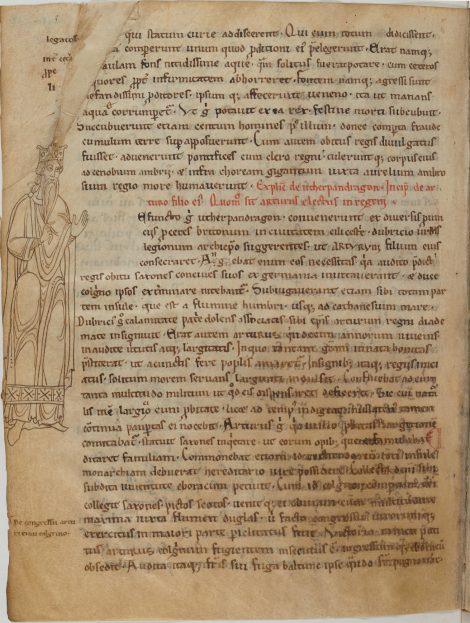 legatos
qui statum curie addiscerent. Qui cum totum didicissent
comperunt unum quod proditioni elegerunt. Erat namq;
aulam fons nitidissime aque quam solitus fuerat potare. cum ceteros
liquores propter infirmitatem abhorreret. fontem namq; agressi sunt
nefandissimi proditores. ipsum q; affecerunt veneno. ita ut manans
aqua corrumperetur. Vt g potauit ex ea rex. festine morti succubuit.
Succubuerunt etiam centum homines post illum. donec comperta fraude
cumulum terre supapposuerunt. Cum autem obitus regis diuulgatus
fuisset. aduenerunt pontifices cum clero regni. tulerunt q; corpus eius
ad cenobium ambrii. et infra choream gigantum iuxta aurelium ambro
sium regio more humauerunt. Explic de utherpendragon. Incip de ar
turo filio ei. Quom sit arturus electus in regem
Defuncto g utherpendragon. conuenerunt ex diuersis puin
ciis proceres britonum in ciuitatem cilcestr. dubricio urbis
legionum archiepo suggerentes. ut ARTVRVM filium eius
consecraret. Arguebat enim eos necessitas quia audito predicti
regis obitu saxones conciues suos ex germania inuitauerant. & duce
colgrino ipsos exterminare nitebantur. Subiugauerant etiam sibi totam par
tem insule. que est a flumine humbri. usq; ad cathanesium mare.
Dubricius g calamitate patrie dolens associatis sibi epis arturum regni diade
mate insigniuit. Erat autem arturus quindecim annorum iuuenis
inaudite uirtutis atq; largitatis. In quo tantam gratiam innata bonitas
prestiterat. ut a cunctis fere populis amaretur. Insignibus itaq; regiis inici
atus. solitum morem seruans largitati indulsit. Confluebat ad eum
tanta multitudo militum ut ei quod dispensaret deficeret. Sed cui natura
lis inest largitio cum probitate. licet ad tempus indigeat nullatenus tamen
continua paupertas ei nocebit. Arturus g quia in illo probitas largitionem
comitabatur. statuit saxones inquietare. ut eorum opibus que ei famulabatur
ditaret familiam. Commonebat etiam id rectitudo cum totius insule
monarchiam debuerat hereditario iure possidere. Collecta deinde sibi
subdita iuuentute eboracum petiuit. Cumq; id colgrino compertum esset
collegit saxones pictos scotos. uenit q; ei obuiam cum multitudine
maxima iuxta flumen duglas. ubi facto congressu utrorumq;
exercitus in maiori parte periclitatus fuit. Victoria tamen poti
tus arturus. colgrinum fugientem insecutus est. ingressum q; eboracum
obsedit. Audita itaq; fratris sui fuga baldulfus ipse
De congressu artu
ri cum colgrino.